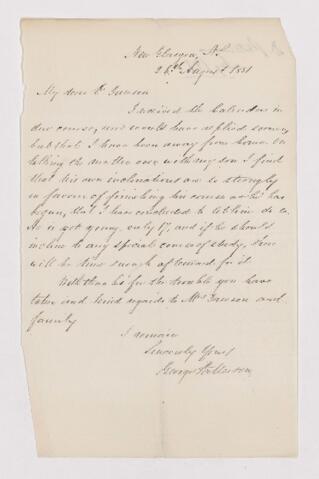 New Glasgow, N.S.
26th August 1881
My dear Dr Dawson
I received the Calendar in
due course, and would have replied sooner,
but that I have been away from home. On
talking the matter over with my son I find
that his own inclinations are so strongly
in favour of finishing his course as he has
begun, that I have concluded to let him do so.
He is yet young, only 17, and if he should
incline to any special course of study, time
will be time enough afterward for it
With thanks for the trouble you have
taken and kind regards to Mrs Dawson and
family
I remain
Sincerely Yours
George Patterson